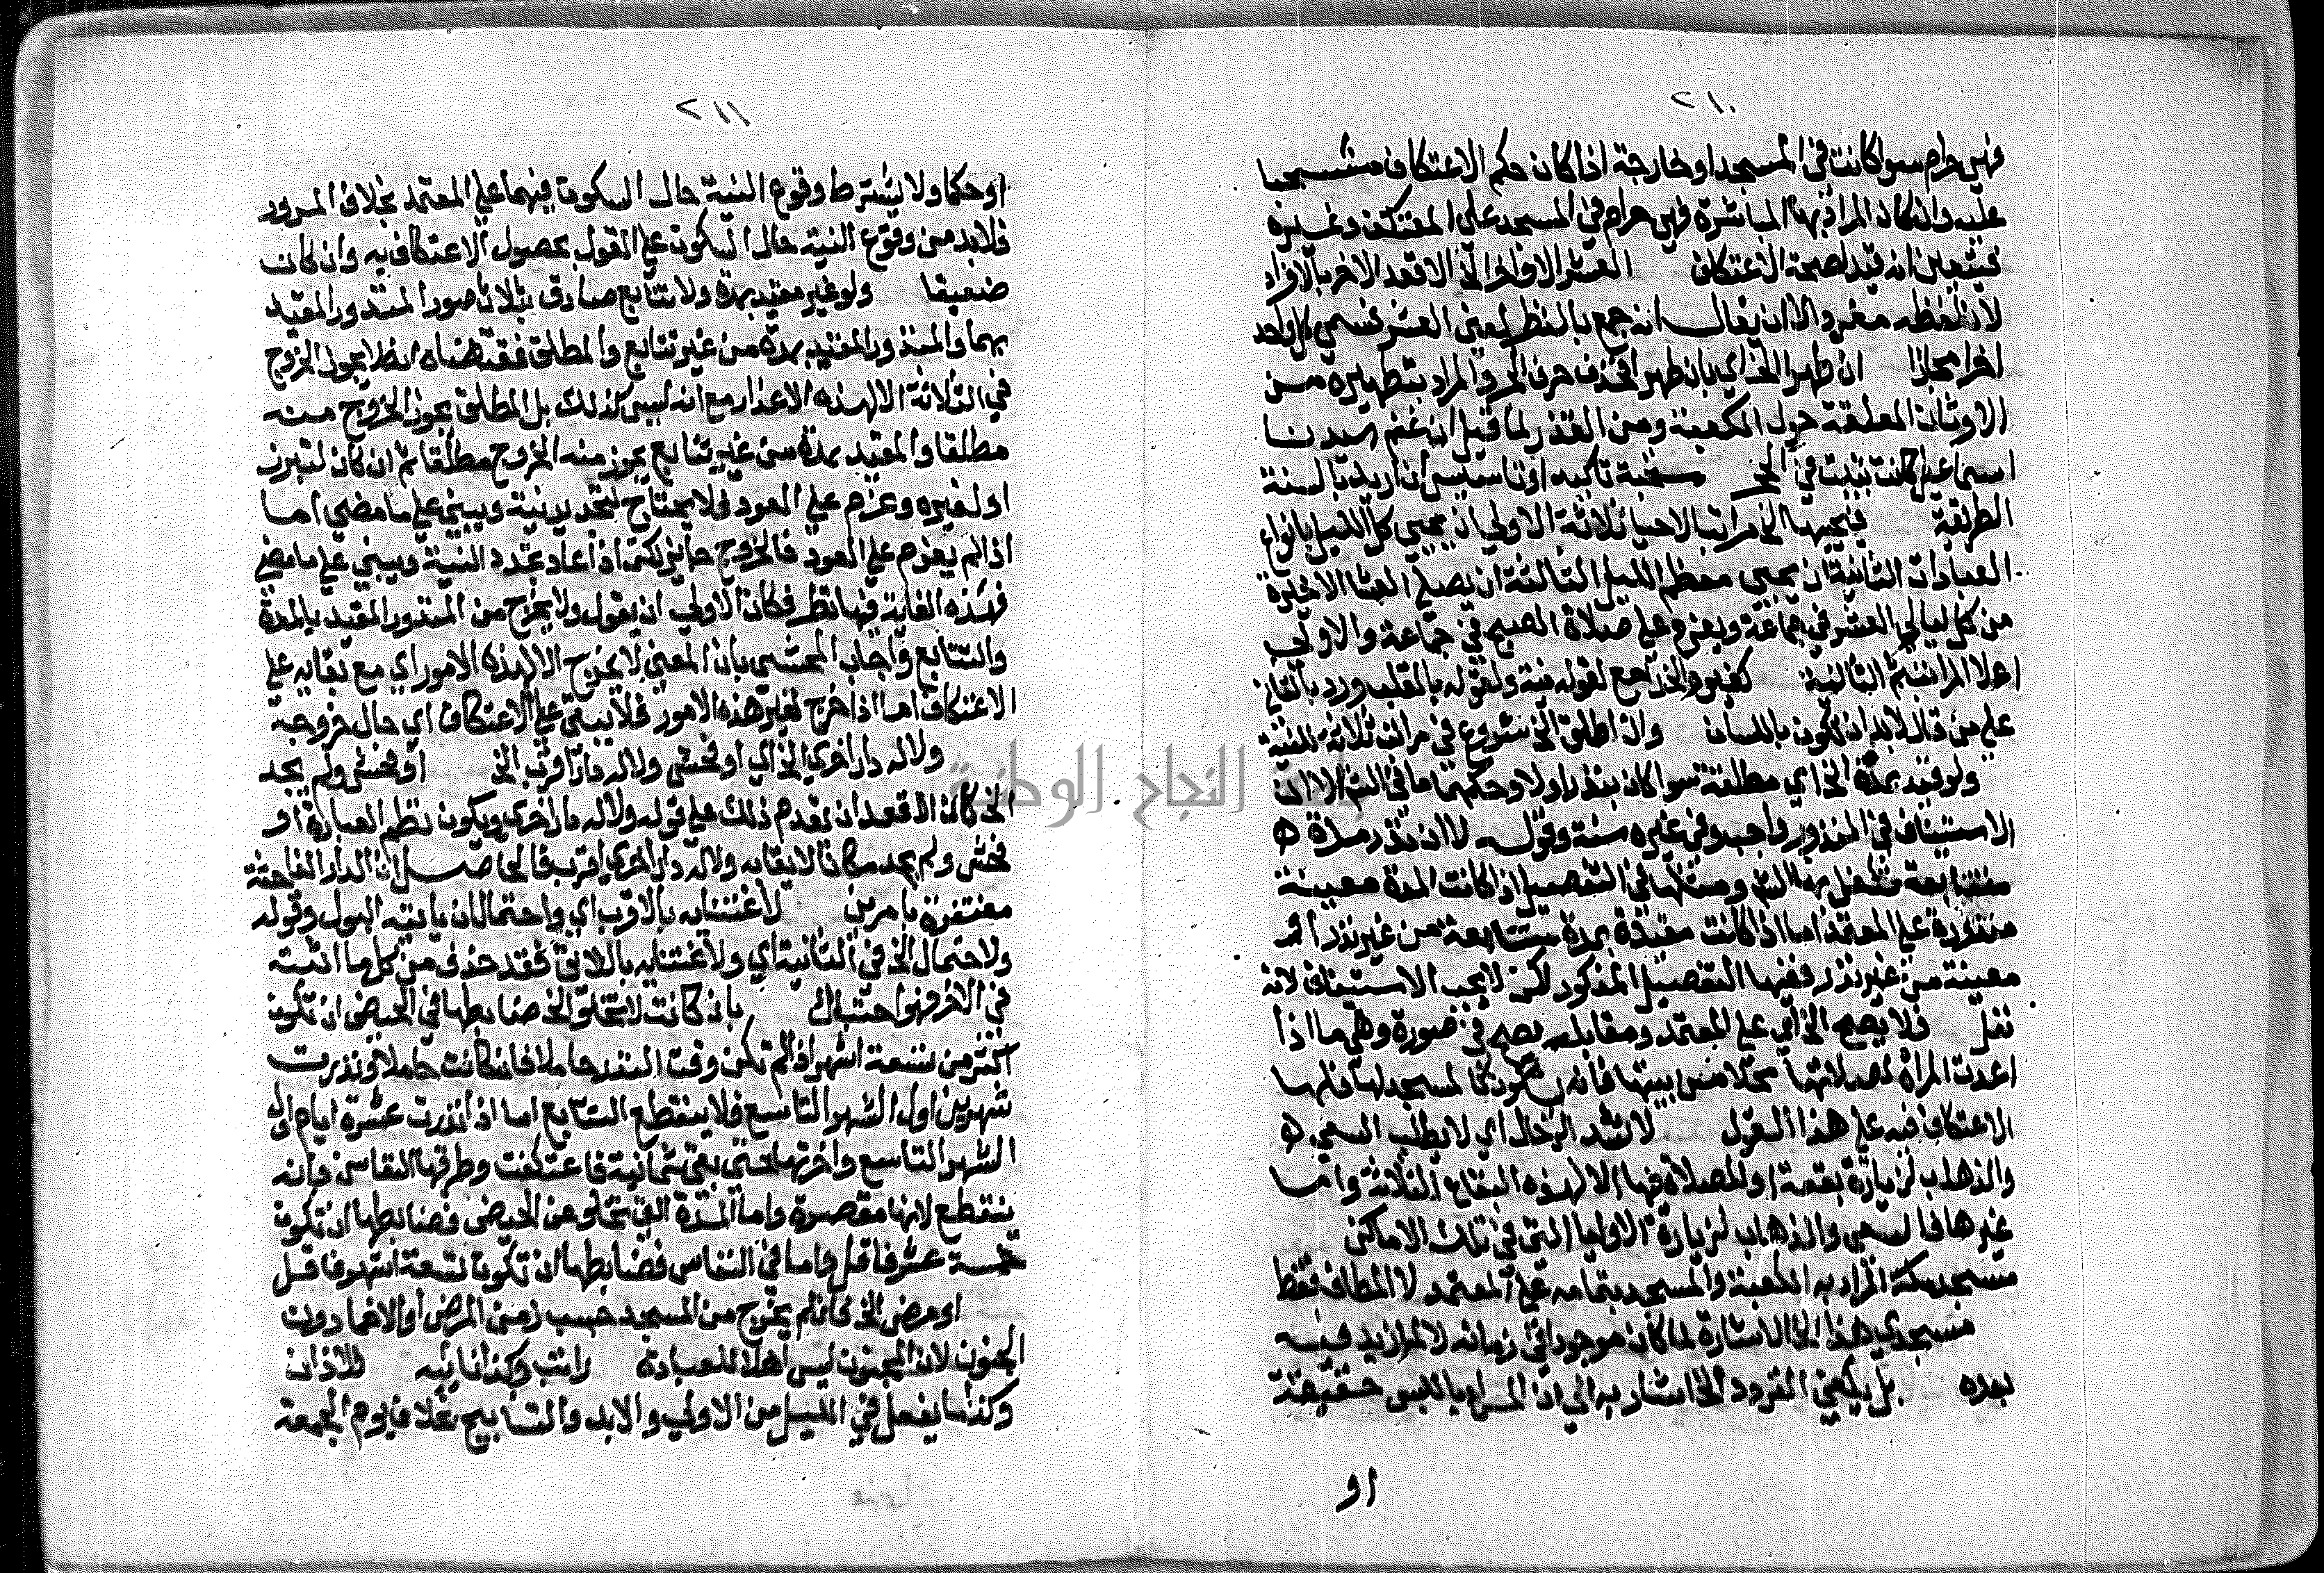 ٢١٠
فهي حرام سوا كانت في المسجد او خارجة اذا كان حكم الاعتكاف منسحبا
عليه وان كان المراد بها المباشرة فهي حرام في المسجد على المعتكف وغيره
فيتعين انه قيد لصحة الاعتكاف العشر الاواخر الخ الاقعد الاخر بالافراد
لان لفظه مفرد الا ان يقال انه جمع بالنظر لمعنى العشر فسمي كل واحد
اخرا مجازا ان طهرا الخ اي بان طهرا فحذف حرف الجر والمراد بتطهيره من
الاوثان المعلقة حول الكعبة ومن القذر لما قيل ان غنم سيدنا
اسماعيل كانت تبيت في الحجر سنة تاكيد او تاسيس ان اريد بالسنة
الطريقة فيحييها الخ مراتب الاحيا ثلاثة الاولى ان يحيي كل الليل بانواع
العبادات الثانية ان يحيي معظم الليل الثالثة ان يصلي العشا الاخيرة
من كل ليالي العشر في جماعة ويعزم على صلاة الصبح في جماعة والاولى
اعلا المراتب ثم الثانية كغيره الخ راجع لقوله نية ولقوله بالقلب ورد بالثاني
على من قال لا بد ان تكون باللسان وان اطلق الخ شروع في مراتب ثلاثة للنية
ولو قيد بمدة الخ اي مطلقة سوا كان بنذر او لا وحكمها ما في الشرح الا ان
الاستيناف في المنذور واجب وفي غيره سنة وقوله لا ان نذر مدة ه
متتابعة ومثلها في التفصيل اذا كانت المدة معينة
منذورة على المعتمد اما اذا كانت مقيدة بمدة متتابعة من غير نذر او
معينة من غير نذر ففيها التفصيل المذكور لكن لا يجب الاستيناف لانه
نفل فلا يصح الخ اي على المعتمد ومقابله يصح في صورة وهي ما اذا
اعدت المراة لصلاتها محلا من بيتها فانه يكون كالمسجد لها فلها
الاعتكاف فيه على هذا القول لا تشد الرحال اي لا يطلب السعي ه
والذهاب لزيارة بقعة او للصلاة فيها الا لهذه البقاع الثلاثة واما
غيرها فالسعي والذهاب لزيارة الاوليا التي في تلك الاماكن
مسجد مكة المراد به الكعبة والمسجد بتمامه على المعتمد لا المطاف فقط
مسجدي هذا الخ الاشارة لما كان موجودا في زمانه لا لما زيد فيه
بعده بل يكفي التردد الخ اشار به الى ان المراد باللبس حقيقة
او
٢١١
او حكما ولا يشترط وقوع النية حال السكون فيهما على المعتمد بخلاف المرور
فلا بد من وقوع النية حال السكون على القول بحصول الاعتكاف به وان كان
ضعيفا ولو غير مقيد بمدة ولا تتابع صادق بثلاث صور المنذور المقيد
بهما والمنذور المقيد بمدة من غير تتابع والمطلق فمقتضاه انه لا يجوز الخروج
في الثلاثة الا لهذه الاعذار مع انه ليس كذلك بل المطلق يجوز الخروج منه
مطلقا والمقيد بمدة من غير تتابع يجوز منه الخروج مطلقا ثم ان كان لتبرز
او لغيره وعزم على العود فلا يحتاج لتجديد نية ويبني على ما مضى اما
اذا لم يعزم على العود فالخروج جايز لكن اذا عاد يجدد النية ويبني على ما مضى
فهذه الغاية فيها نظر فكان الاولى ان يقول ولا يخرج من المنذور المقيد بالمدة
والتتابع واجاب المحشي بان المعنى لا يخرج الا لهذه الامور اي مع بقايه على
الاعتكاف اما اذا خرج لغير هذه الامور فلا يبقى على الاعتكاف اي حال خروجه
ولا له دار اخرى الخ اي او فحش ولا له دار اقرب الخ او فحش ولم يجد
الخ كان الاقعد ان يقدم ذلك على قوله ولا له دار اخرى ويكون نظم العبارة او
فحش ولم يجد مكانا لايقا به ولا له دار اخرى اقرب فالحاصل ان الدار الفاحشة
مغتفرة بامرين لاغتنايه بالاقرب اي واحتمال ان ياتيه البول وقوله
ولاحتمال الخ في الثانية اي ولاغتنايه باللايق فقد حذف من كل ما اثبته
في الاخر فهو احتباك بان كانت لا تخلو الخ ضابطها في الحيض ان تكون
اكثر من تسعة اشهر اذا لم تكن وقت النذر حاملا فان كانت حاملا ونذرت
شهرين اول الشهر التاسع فلا ينقطع التتابع اما اذا نذرت عشرة ايام اول
الشهر التاسع واخرتها حتى بقي ثمانية فاعتكفت وطرقها النفاس فانه
ينقطع لانها مقصرة واما المدة التي تخلو عن الحيض فضابطها ان تكون
خمسة عشر فاقل واما في النفاس فضابطها ان تكون تسعة اشهر فاقل
او مرض الخ فان لم يخرج من المسجد حسب زمن المرض او الاغما دون
الجنون لان المجنون ليس اهلا للعبادة راتب وكذا نايبه للاذان
وكذا ما يفعل في الليل من الاولى والابد والتسابيح بخلاف يوم الجمعة